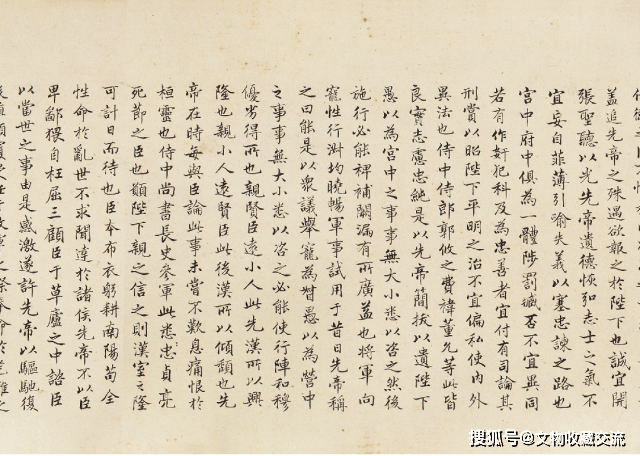 蓋追先帝之殊遇欲報之於陛下也誠宜開
張聖聽以光先帝遺德恢弘志士之氣不
宜妄自菲薄引喻失義以塞忠諫之路也
宮中府中俱為一體陟罰臧否不宜異同
若有作奸犯科及為忠善者宜付有司論其
刑賞以昭陛下平明之治不宜偏私使內外
異法也侍中侍郎郭攸之費禕董允等此皆
良實志慮忠純是以先帝簡拔以遺陛下
愚以為宮中之事事無大小悉以咨之然後
施行必能裨補闕漏有所廣益也將軍向
寵性行淑均曉暢軍事試用于昔日先帝稱
之曰能是以衆議舉寵為督愚以為營中
之事事無大小悉以咨之必能使行陣和穆
優劣得所也親賢臣遠小人此先漢所以興
隆也親小人遠賢臣此後漢所以傾頹也先
帝在時每與臣論此事未嘗不歎息痛恨於
桓靈也侍中尚書長史參軍此悉忠貞亮
死節之臣也願陛下親之信之則漢室之隆
可計日而待也臣本布衣躬耕南陽苟全
性命於亂世不求聞達於諸侯先帝不以臣
卑鄙猥自枉屈三顧臣于草廬之中諮臣
以當世之事由是感激遂許先帝以驅馳復
搜狐号@文物收藏交流